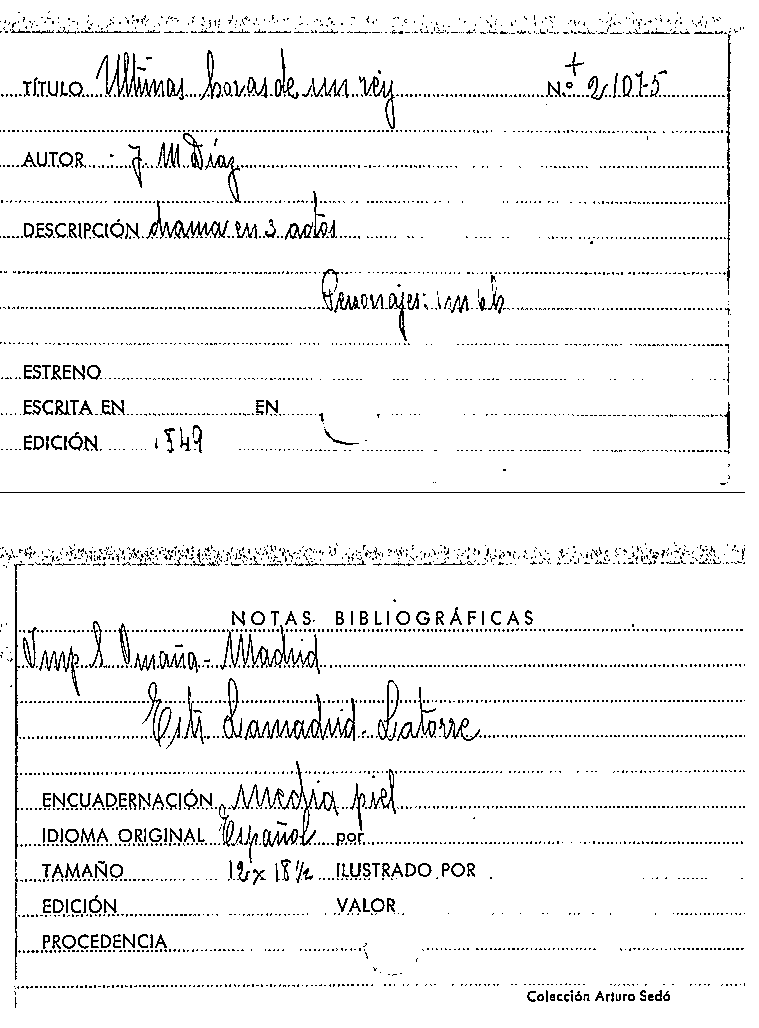 TÍTULO Ultimas horas de un rey N.º + 2107-5
AUTOR J. M Díaz
DESCRIPCIÓN drama en 3 actos
Personajes: 1m 6h
ESTRENO
ESCRITA EN EN
EDICIÓN 1849
NOTAS BIBLIOGRÁFICAS
Imp S Omaña - Madrid
Estr. Lamadrid - Latorre
ENCUADERNACIÓN media piel
IDIOMA ORIGINAL Español por
TAMAÑO 12 x 18 ½ ILUSTRADO POR
EDICIÓN VALOR
PROCEDENCIA
Colección Arturo Sedó